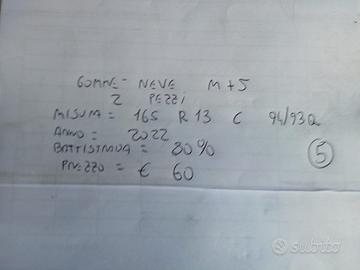 GOMME - NEVE M+S
2 PEZZI
MISURA = 165 R 13 C 94/93Q
ANNO = 2022
BATTISTRADA = 80%
PREZZO = € 60
5
subito